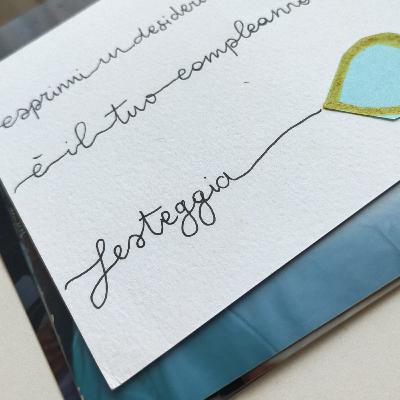 esprimi un desiderio
è il tuo compleanno
festeggia